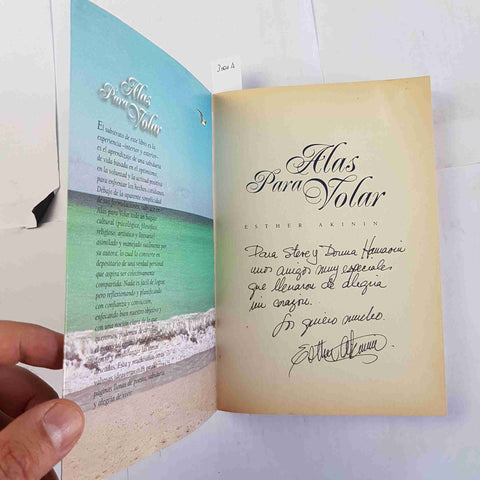 Alas
Para Volar
El substrato de este libro es la
experiencia -interior y exterior-
es el aprendizaje de una sabiduría
de vida basada en el optimismo,
en la voluntad y la actitud positiva
para enfrentar los hechos cotidianos.
Debajo de la aparente simplicidad
de sus formulaciones, subyace en
Alas para Volar todo un bagaje
cultural (psicológico, filosófico,
religioso, artístico y literario)
asimilado y manejado sutilmente por
su autora, lo cual la convierte en
depositario de una verdad personal
que aspira ser colectivamente
compartida. Nada es fácil de lograr,
pero reflexionando y planificando
con confianza y convicción,
enfocando bien nuestro objetivo y
con una noción clara de lo que
páginas llenas de poesía, sabiduría
y alegría de vivir.
Alas
Para Volar
ESTHER AKININ
Para Steve y Donna
unos amigos muy especiales
que llenaron de alegria
mi corazon.
Los quiero mucho.
Esther Akinin